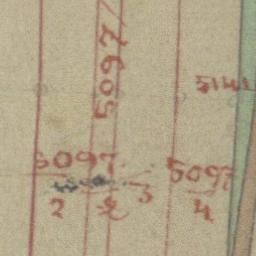 5097/
5141
5097
2
2
3
5097
4